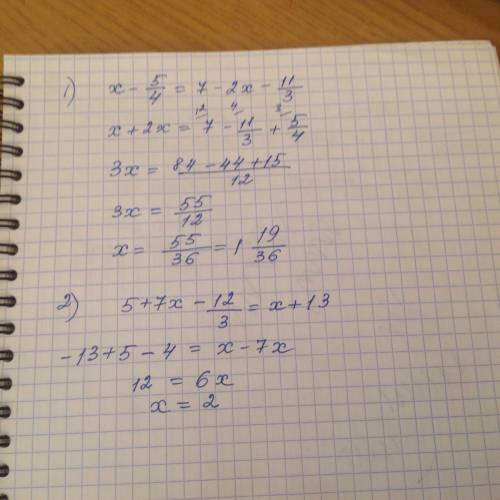 1) x - 5/4 = 7 - 2x - 11/3
x + 2x = 12/ 7 - 4/ 11/3 + 3/ 5/4
3x = (84 - 44 + 15)/12
3x = 55/12
x = 55/36 = 1 19/36
2) 5 + 7x - 12/3 = x + 13
-13 + 5 - 4 = x - 7x
12 = 6x
x = 2